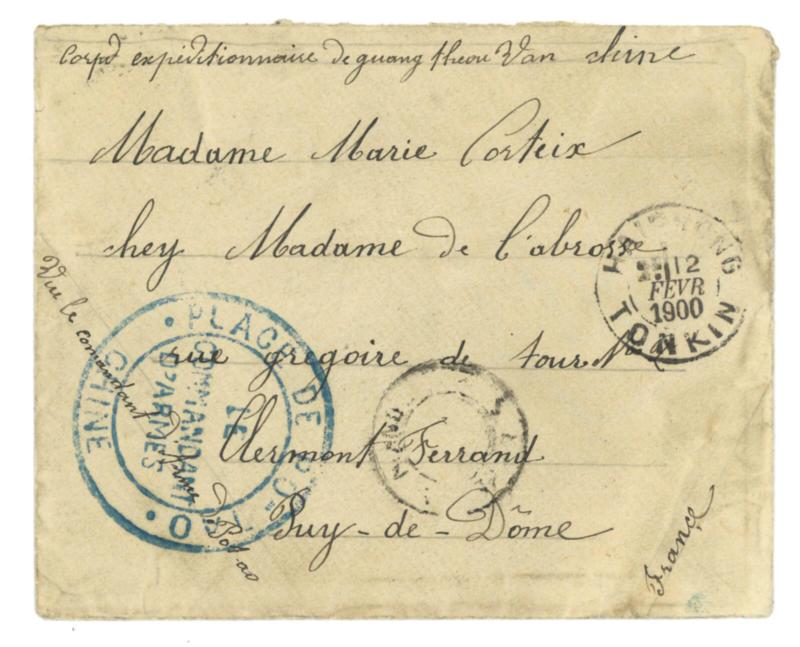 Corps expéditionnaire de guang theou Van chine
Madame Marie Corteix
chey Madame de l'abrosse
rue gregoire de tour N°
Clermont Ferrand
Puy-de-Dôme
France
Vu le comandant d'armes de Potao
PLACE DE PO
CHINE
LE
COMMANDANT
D'ARMES
HAIPHONG
12
FEVR
1900
TONKIN